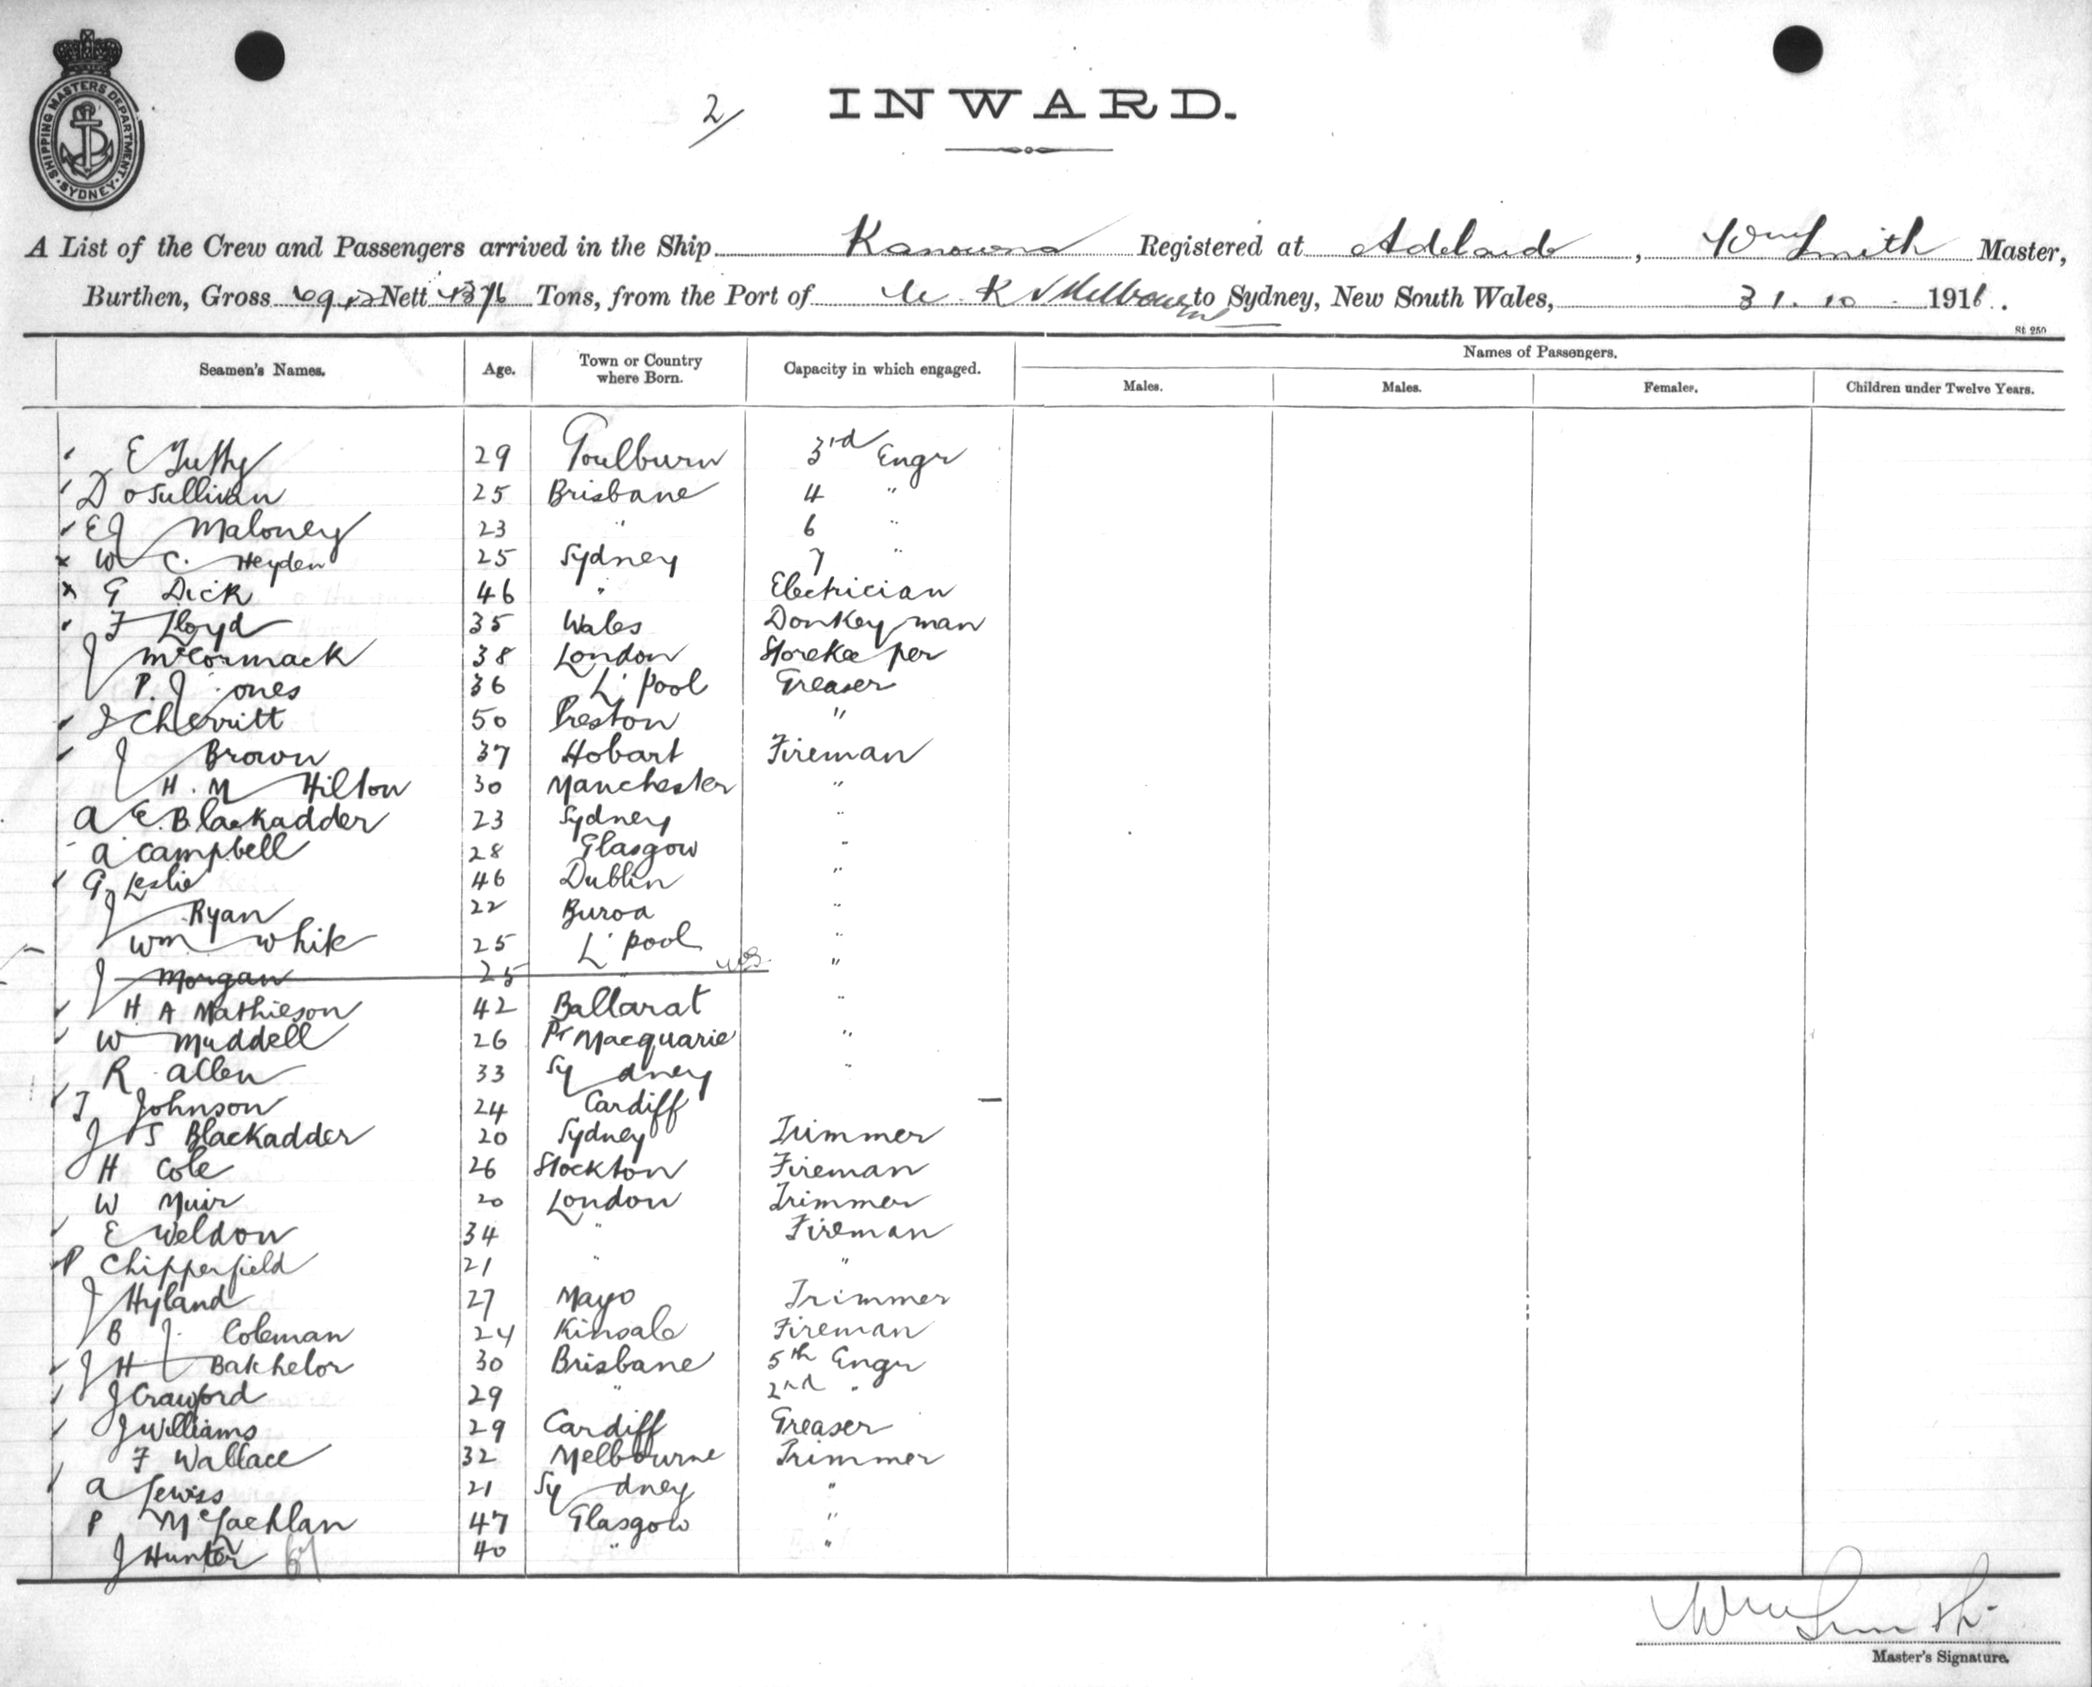 SHIPPING MASTERS DEPARTMENT · SYDNEY ·
2/
INWARD.
A List of the Crew and Passengers arrived in the Ship Kanowna Registered at Adelaide, Wm Smith Master,
Burthen, Gross Nett Tons, from the Port of U K & Melbourne to Sydney, New South Wales, 31. 10 1916.
St 250
Seamen's Names. Age. Town or Country where Born. Capacity in which engaged. Names of Passengers.
Males. Males. Females. Children under Twelve Years.
E Tuffy 29 Goulburn 3rd Engr
D O Sullivan 25 Brisbane 4 "
E J Maloney 23 " 6 "
W C. Heyden 25 Sydney 7 "
G Dick 46 " Electrician
F Lloyd 35 Wales Donkeyman
J McCormack 38 London Storekeeper
P. J Jones 36 L'pool Greaser
J Cherritt 50 Preston "
J Brown 37 Hobart Fireman
H. M Hilton 30 Manchester "
A E. Blackadder 23 Sydney "
A Campbell 28 Glasgow "
G Leslie 46 Dublin "
J Ryan 22 Buroa "
Wm White 25 L'pool "
J Morgan 25 " "
H A Mathieson 42 Ballarat "
W Muddell 26 Pt Macquarie "
R Allen 33 Sydney "
T Johnson 24 Cardiff —
J S Blackadder 20 Sydney Trimmer
H Cole 26 Stockton Fireman
W Muir 20 London Trimmer
E Weldon 34 " Fireman
P Chipperfield 21 " "
J Hyland 27 Mayo Trimmer
B J. Coleman 24 Kinsale Fireman
J H Batchelor 30 Brisbane 5th Engr
J Crawford 29 " 2nd "
J Williams 29 Cardiff Greaser
F Wallace 32 Melbourne Trimmer
A Lewiss 21 Sydney "
P McLachlan 47 Glasgow "
J Hunter 40 " "
Wm Smith
Master's Signature.